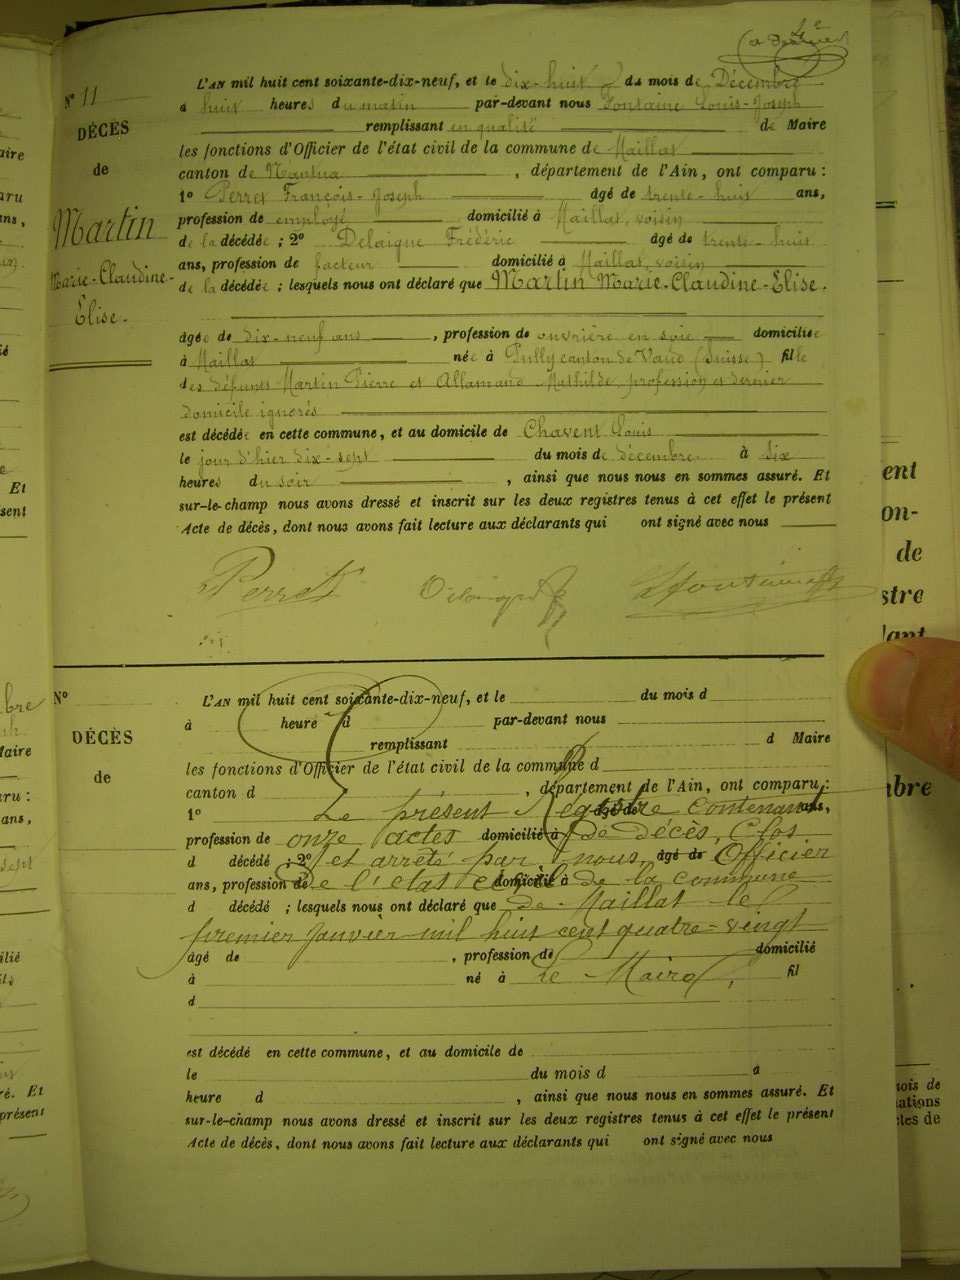 4e
N° 11
DÉCÈS
de
Martin
Marie-Claudine-
Élise.
L'AN mil huit cent soixante-dix-neuf, et le dix-huit du mois de Décembre
à huit heures du matin par-devant nous Fontaine Louis-Joseph
remplissant en qualité de Maire
les fonctions d'Officier de l'état civil de la commune de Maillat
canton de Nantua , département de l'Ain, ont comparu :
1° Perret François-Joseph âgé de trente-huit ans,
profession de employé domicilié à Maillat, voisin
de la décédée ; 2° Delaigue Frédéric âgé de trente-huit
ans, profession de facteur domicilié à Maillat, voisin
de la décédée ; lesquels nous ont déclaré que Martin Marie-Claudine-Elise.
âgée de dix-neuf ans , profession de ouvrière en soie domiciliée
à Maillat née à Pully canton de Vaud (Suisse) fille
des défunts Martin Pierre et Allamand Mathilde, profession et dernier
domicile ignorés
est décédée en cette commune, et au domicile de Chavent Louis
le jour d'hier dix-sept du mois de décembre à six
heures du soir , ainsi que nous nous en sommes assuré. Et
sur-le-champ nous avons dressé et inscrit sur les deux registres tenus à cet effet le présent
Acte de décès, dont nous avons fait lecture aux déclarants qui ont signé avec nous
Perret Delaigue Fontaine
N°
DÉCÈS
de
L'AN mil huit cent soixante-dix-neuf, et le du mois d
à heure d par-devant nous
remplissant d Maire
les fonctions d'Officier de l'état civil de la commune d
canton d , département de l'Ain, ont comparu :
1° âgé de ans,
Le présent Registre contenant
profession de domicilié à
onze actes de décès, Clos
d décédé ; 2° âgé de
et arrêté par nous, Officier
ans, profession de domicilié à
de l'état civil de la commune
d décédé ; lesquels nous ont déclaré que
de Maillat le
premier janvier mil huit cent quatre-vingt
âgé de , profession de domicilié
à né à fil
Le Maire,
d
est décédé en cette commune, et au domicile de
le du mois d à
heure d , ainsi que nous nous en sommes assuré. Et
sur-le-champ nous avons dressé et inscrit sur les deux registres tenus à cet effet le présent
Acte de décès, dont nous avons fait lecture aux déclarants qui ont signé avec nous